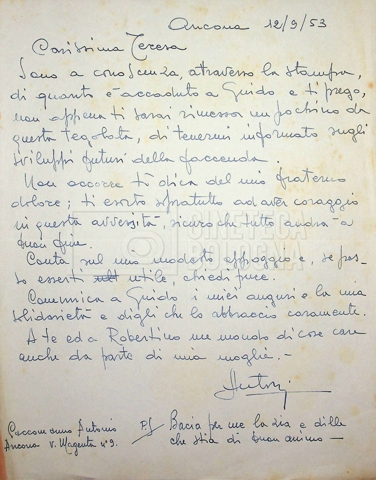 Ancona 12/9/53
Carissima Teresa
Sono a conoscenza, attraverso la stampa,
di quanto è accaduto a Guido e ti prego,
non appena ti sarai rimessa un pochino da
questa tegolata, di tenermi informato sugli
sviluppi futuri della faccenda.
Non occorre ti dica del mio fraterno
dolore; ti esorto sopratutto ad aver coraggio
in questa avversità, sicuro che tutto andrà a
buon fine.
Conta sul mio modesto appoggio e, se pos-
so esserti utile, chiedi pure.
Comunica a Guido i miei auguri e la mia
solidarietà e digli che lo abbraccio caramente.
A te ed a Robertino un mondo di cose care
anche da parte di mia moglie.-
Antonio
Ancona v. Magenta n° 9.
P.S/ Bacia per me la zia e dille
che stia di buon animo -
CINETECA
BOLOGNA